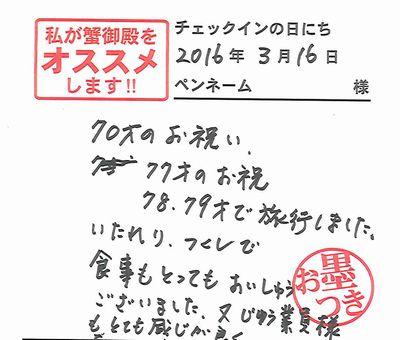 私が蟹御殿を
オススメ
します!!
チェックインの日にち
2016年3月16日
ペンネーム 様
70才のお祝い、
77才のお祝
78.79才で旅行しました。
いたれり、つくしで
食事もとっても おいしゅう
ございました、又じゅう業員様
もとても感じが良く
お墨つき